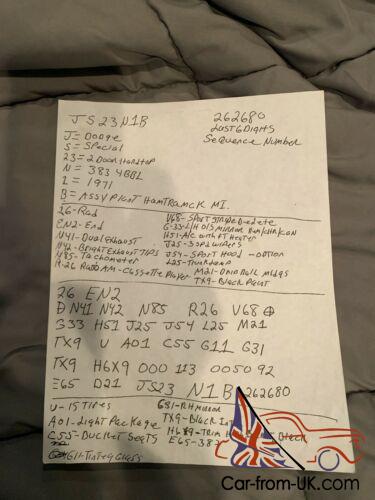 JS23N1B
262680
Last 6 Digits
Sequence Number
J = Dodge
S = Special
23 = 2 Door Hardtop
N = 383 4BBL
1 = 1971
B = Assy Plant Hamtramck MI.
26 - Rad
EN2 - End
N41 - Dual Exhaust
N42 - Bright Exhaust Tips
N85 - Tachometer
R-26 Radio AM - Cassette Player
V68 - Sport Stripe Delete
G-33 - L/H O/S Mirror
H51 - A/C with Heater
J25 - 3 Spd Wipers
J54 - Sport Hood - option
L25 - Trunk
M21 - Drip Rail Mldgs
TX9 - Black Paint
26 EN2
N41 N42 N85 R26 V68
G33 H51 J25 J54 L25 M21
TX9 U A01 C55 G11 G31
TX9 H6X9 000 113 005092
E65 D21 JS23 N1B 262680
U - 15 Tires
A01 - Light Package
C55 - Bucket Seats
G11 - Tinted Glass
G31 - RH Mirror
TX9 - Black
H6X9 - Trim
E65 - 383
Car-from-UK.com